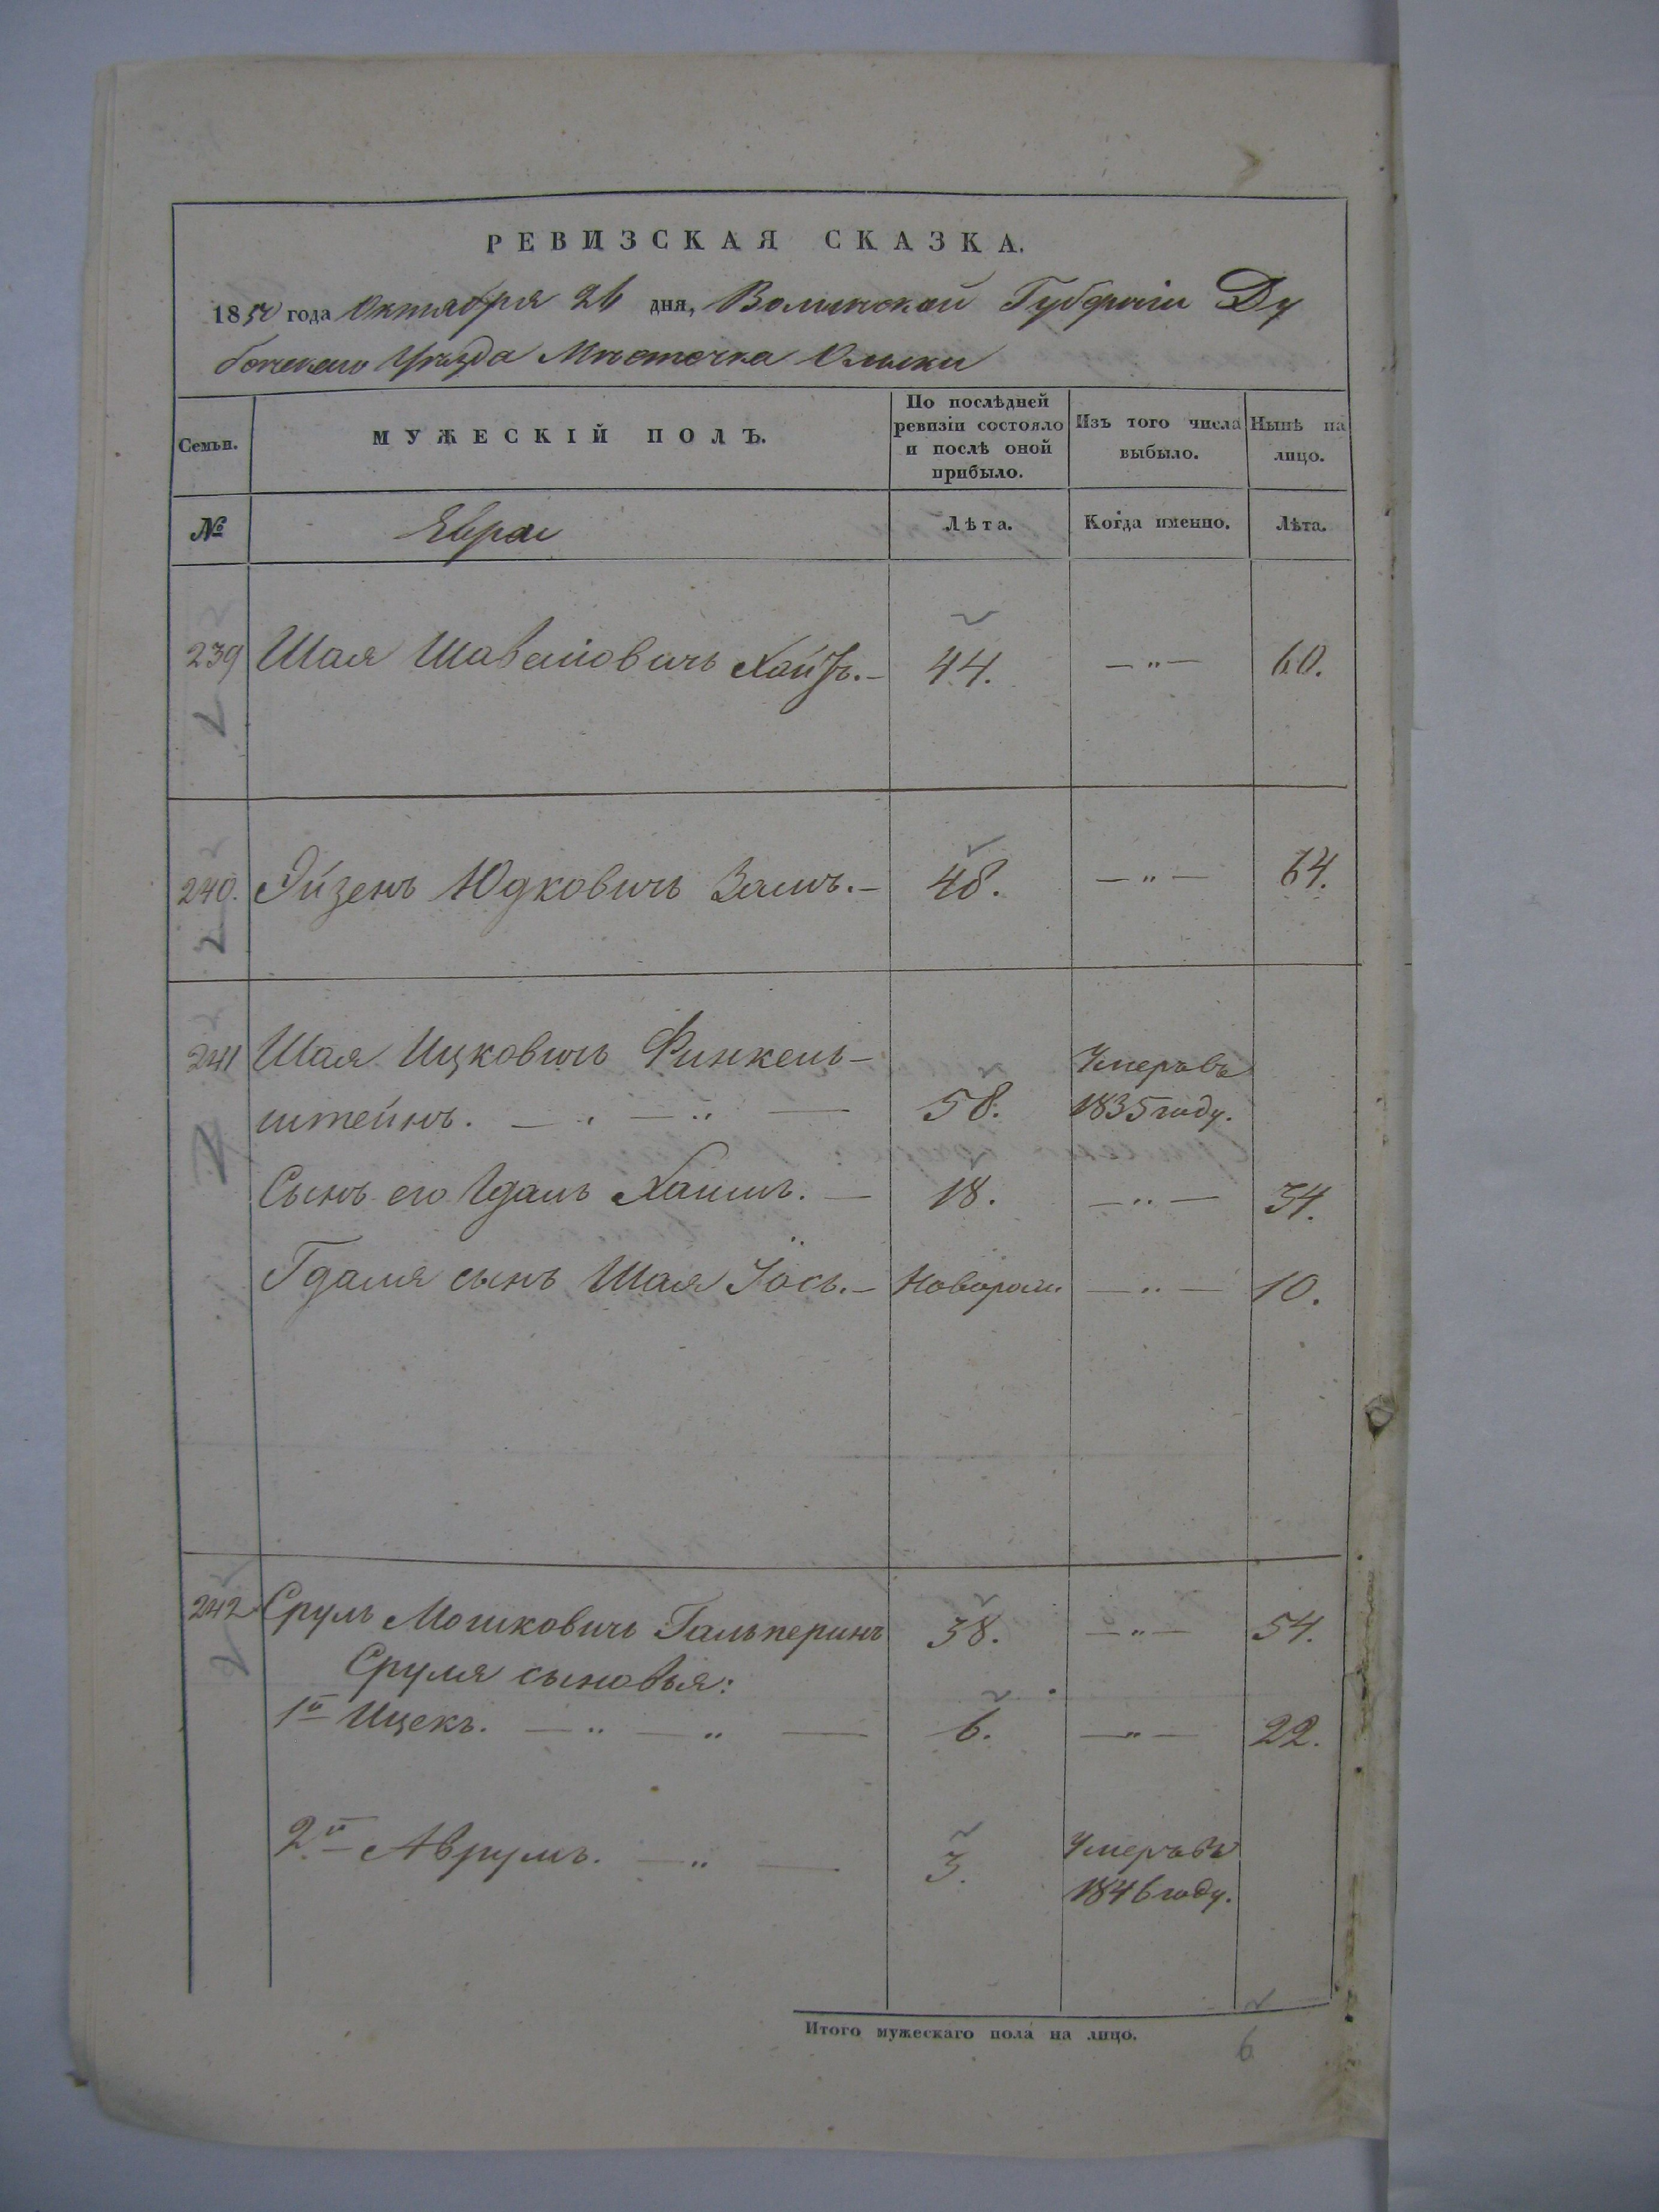 РЕВИЗСКАЯ СКАЗКА.
1850 года Октября 26 дня, Волынской Губерніи Ду
бенскаго Уѣзда Мѣстечка Олыки
Семьи.
МУЖЕСКІЙ ПОЛЪ.
По послѣдней
ревизіи состояло
и послѣ оной
прибыло.
Изъ того числа
выбыло.
Нынѣ на
лицо.
№
Евреи
Лѣта.
Когда именно.
Лѣта.
239 Шая 44. — " — 60.
240. Эйзенъ Юдковичъ 48. — " — 64.
241 Шая Ицковичъ Финкель-
штейнъ. — " — " — 58. Умеръ въ
1835 году.
Сынъ его Хаимъ. — 18. — " — 34.
Гдаля сынъ Шая Іось. — Новорож. — " — 10.
242 Сруль Мошковичъ Гальперинъ 38. — " — 54.
Сруля сыновья:
1й Ицекъ. — " — " — 6. — " — 22.
2.й Аврумъ. — " — 3. Умеръ въ
1846 году.
Итого мужескаго пола на лицо. 6